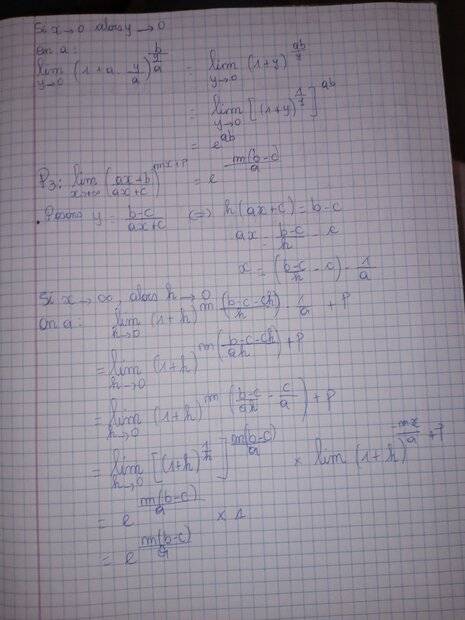 Si x→0 alors y→0
On a :
lim_{y→0} (1+a·y/a)^{b/(y/a)} = lim_{y→0} (1+y)^{ab/y}
= lim_{y→0} [(1+y)^{1/y}]^{ab}
= e^{ab}
P3: lim_{x→∞} (ax+b/ax+c)^{mx+p} = e^{m(b-c)/a}
. Posons y = b-c/ax+c <=> h(ax+c) = b-c
ax = b-c/h - c
x = (b-c/h - c)·1/a
Si x→∞, alors h→0
On a : lim_{h→0} (1+h)^{m(b-c-ch/h)·1/a + p}
= lim_{h→0} (1+h)^{m(b-c-ch/ah)+p}
= lim_{h→0} (1+h)^{m(b-c/ah - c/a)+p}
= lim_{h→0} [(1+h)^{1/h}]^{m(b-c)/a} × lim (1+h)^{-mc/a+p}
= e^{m(b-c)/a} × 1
= e^{m(b-c)/a}